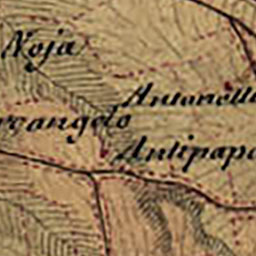 Noja
Antonella
rcangelo
Antipapa